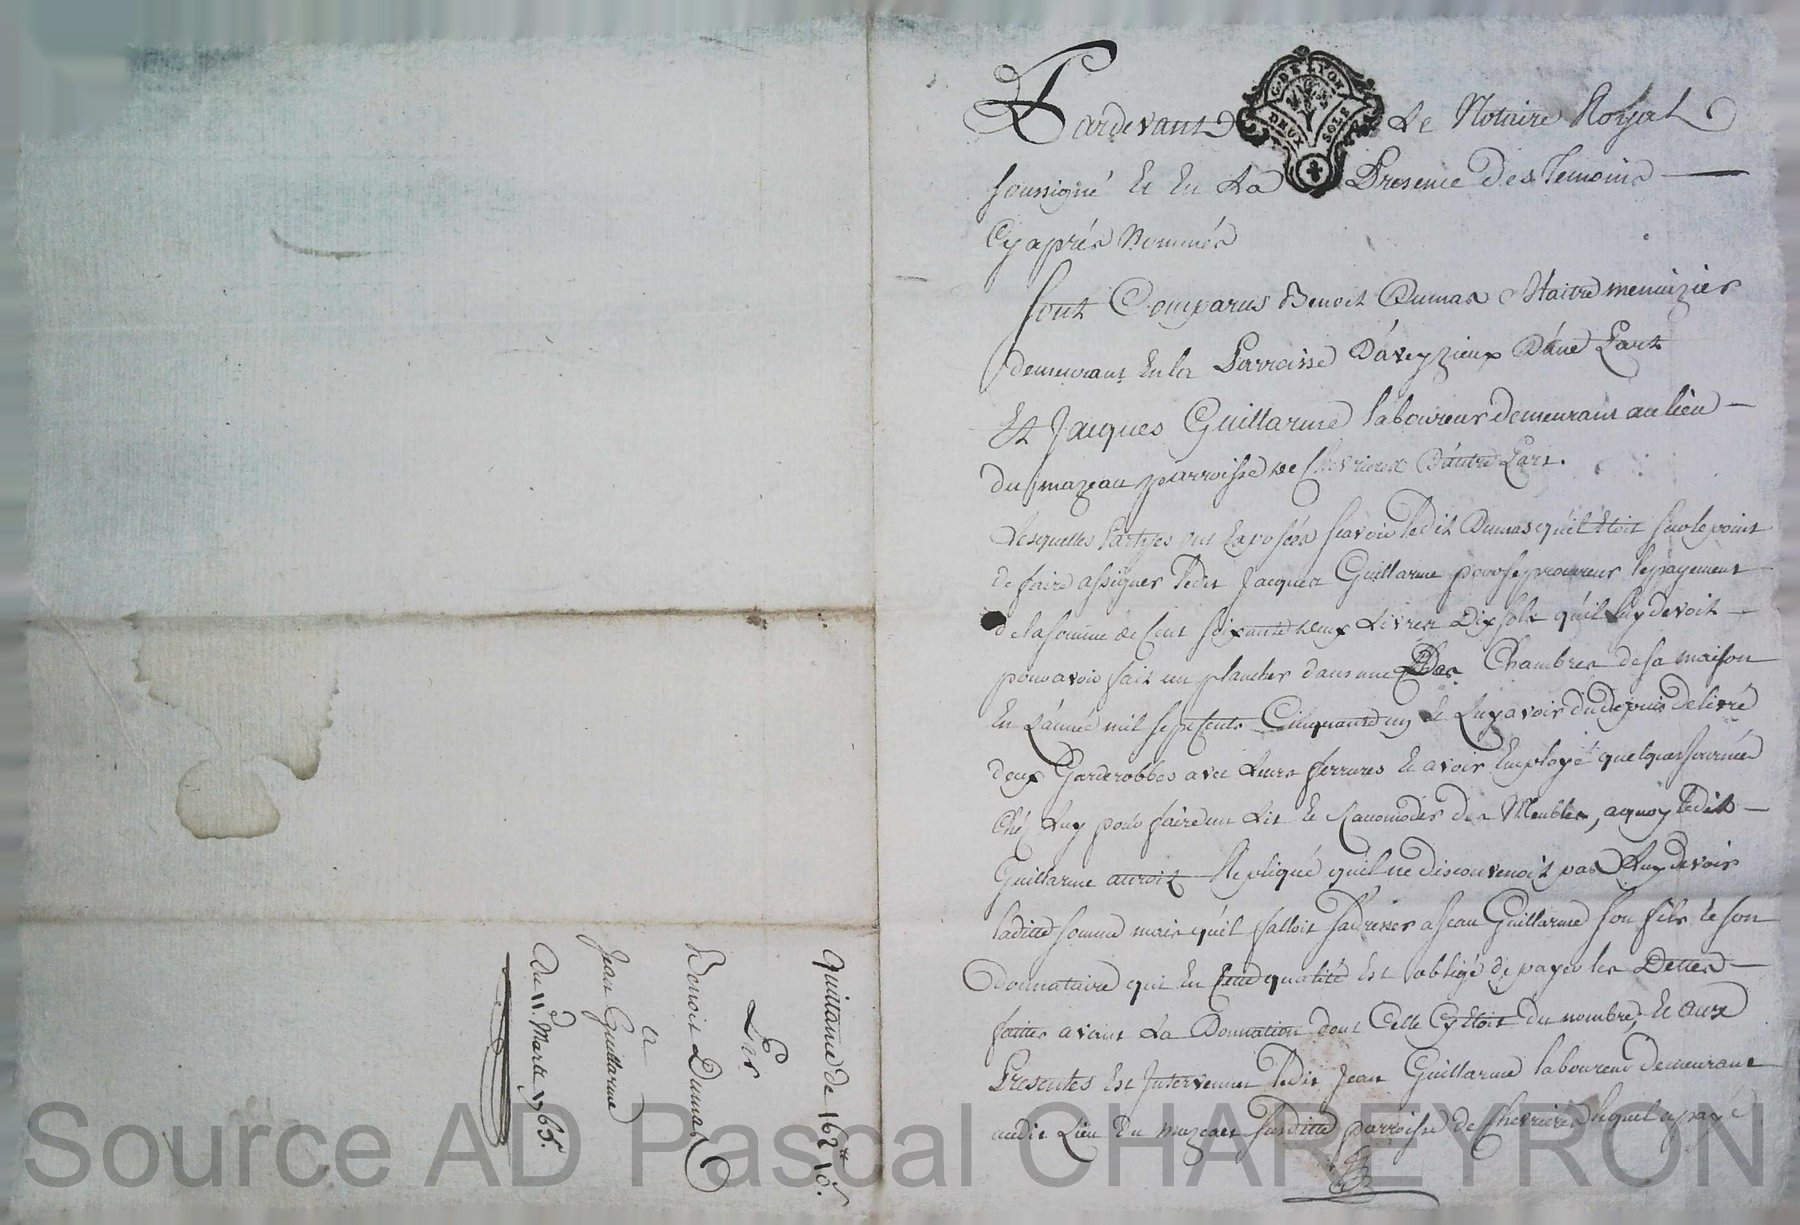 Pardevant Le Notaire Royal
G. DE LYON
DEUX SOLS
soussigné Et En La Presence Des Temoins
Cyaprés Nommés
Sont Comparus Benoit Dumas Maitre menuizier
demeurant En la Parroisse D'aveyzieux D'une Part
Et Jacques Guillarme laboureur demeurant au lieu
du mazeau parroisse de Chevrieres D'autre Part.
Lesquelles Partyes ont Exposées scavoir ledit Dumas qu'il Etoit sur le point
de faire assigner ledit Jacques Guillarme pour se procurer le payement
de la somme de Cent soixante deux Livres Dix sols qu'il luy devoit
pour avoir fait un plancher dans une Des Chambres de sa maison
En L'année mil sept cents Cinquante un Et Luy avoir du depuis delivré
deux Garderobbes avec Leurs ferrures Et avoir Employé quelques journée
Chés Luy pour faire un Lit Et Racomoder des Meubles, a quoy ledit
Guillarme auroit Repliqué qu'il ne disconvenoit pas Luy devoir
laditte somme mais qu'il falloit s'adresser a Jean Guillarme son fils Et son
Donnataire qui En Cette qualité Est obligé de payer les Dettes
faittes avant La Donnation dont Celle Cy Etoit du nombre, Et aux
Presentes Est Intervenu ledit Jean Guillarme laboureur demeurant
audit Lieu du mazeau susditte parroisse de Chevrieres lequel a payé
Quittance de 162ᴸ 10ˢ.
Par
Benoit Dumas
a
Jean Guillarme
Du 11 Mars 1765.
Source AD Pascal CHAREYRON